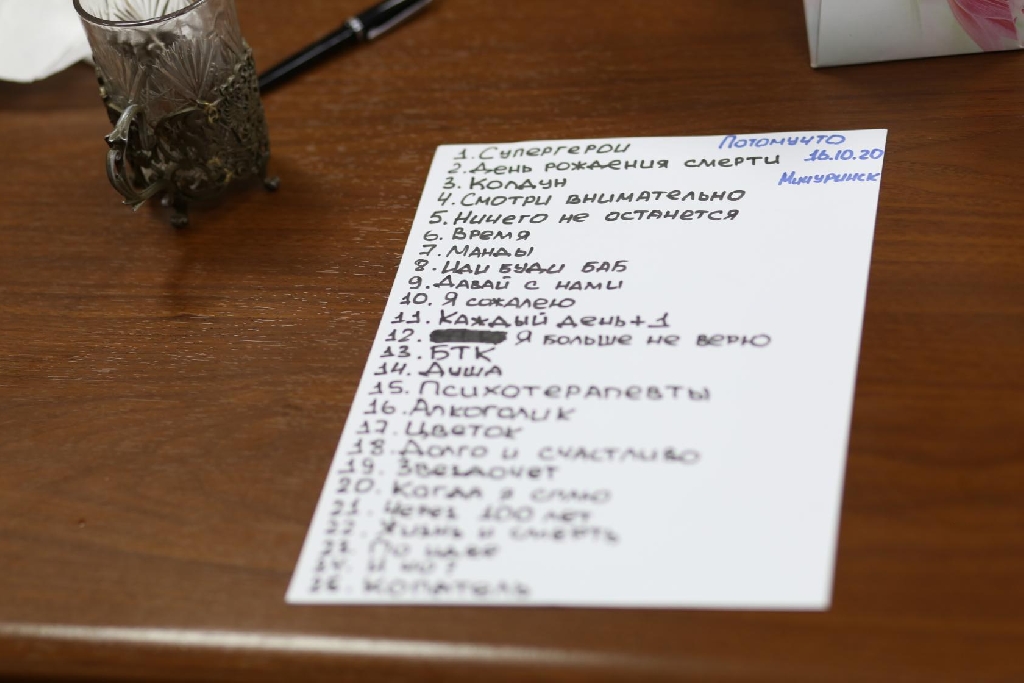 1. Супергерои
Потомучто
2. День рождения смерти
16.10.20
3. Колдун
Мичуринск
4. Смотри внимательно
5. Ничего не останется
6. Время
7. Манды
8. Иди буди баб
9. Давай с нами
10. Я сожалею
11. Каждый день+1
12. Я больше не верю
13. БТК
14. Душа
15. Психотерапевты
16. Алкоголик
17. Цветок
18. Долго и счастливо
19. Звездочет
20. Когда я сплю
21. Через 100 лет
22. Жизнь и смерть
23. По идее
24. И но?
25. Копатель